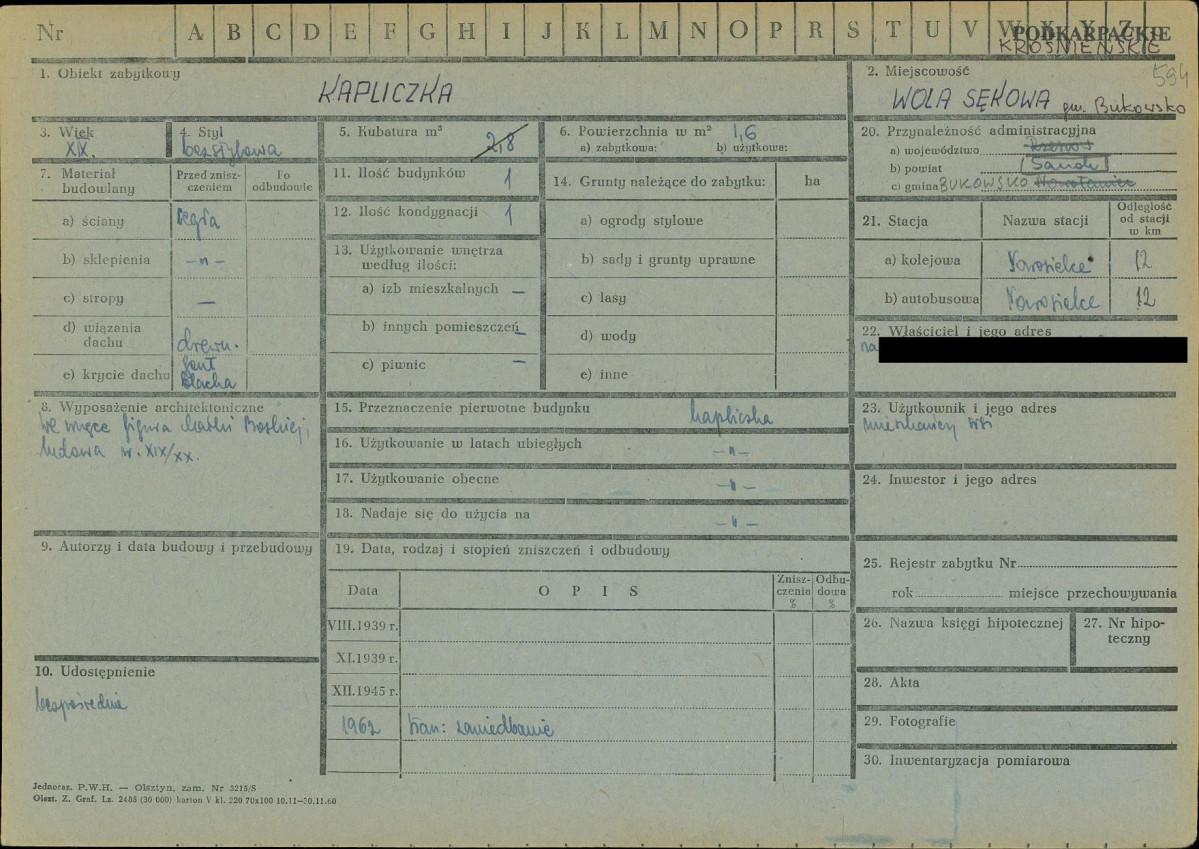 Nr A B C D E F G H I J K L M N O P R S T U V W X Y Z
PODKARPACKIE
KROŚNIEŃSKIE
594
1. Obiekt zabytkowy
KAPLICZKA
2. Miejscowość
WOLA SĘKOWA gm. Bukowsko
3. Wiek
XIX.
4. Styl
bezstylowa
5. Kubatura m³
2,8
6. Powierzchnia w m² 1,6
a) zabytkowa: b) użytkowa:
20. Przynależność administracyjna
a) województwo Rzeszów
b) powiat Sanok
c) gmina BUKOWSKO Nowotaniec
7. Materiał budowlany
Przed zniszczeniem
Po odbudowie
a) ściany cegła
b) sklepienia -"-
c) stropy —
d) wiązania dachu drewn.
e) krycie dachu gont blacha
11. Ilość budynków 1
12. Ilość kondygnacji 1
13. Użytkowanie wnętrza według ilości:
a) izb mieszkalnych —
b) innych pomieszczeń —
c) piwnic —
14. Grunty należące do zabytku: ha
a) ogrody stylowe
b) sady i grunty uprawne
c) lasy
d) wody
e) inne
21. Stacja
Nazwa stacji
Odległość od stacji w km
a) kolejowa Nowosielce 12
b) autobusowa Nowosielce 12
22. Właściciel i jego adres
na
8. Wyposażenie architektoniczne
we wnęce figura Matki Boskiej,
ludowa w. XIX/XX.
15. Przeznaczenie pierwotne budynku kapliczka
16. Użytkowanie w latach ubiegłych -"-
17. Użytkowanie obecne -"-
18. Nadaje się do użycia na -"-
23. Użytkownik i jego adres
mieszkańcy wsi
24. Inwestor i jego adres
9. Autorzy i data budowy i przebudowy
19. Data, rodzaj i stopień zniszczeń i odbudowy
Data OPIS Zniszczenia % Odbudowa %
VIII.1939 r.
XI.1939 r.
XII.1945 r.
1962 stan: zaniedbanie
25. Rejestr zabytku Nr
rok miejsce przechowywania
26. Nazwa księgi hipotecznej
27. Nr hipoteczny
28. Akta
29. Fotografie
30. Inwentaryzacja pomiarowa
10. Udostępnienie
bezpośrednie
Jednoraz. P.W.H. — Olsztyn, zam. Nr 3215/S
Olszt. Z. Graf. Lz. 2488 (30 000) karton V kl. 220 70x100 10.11—30.11.60